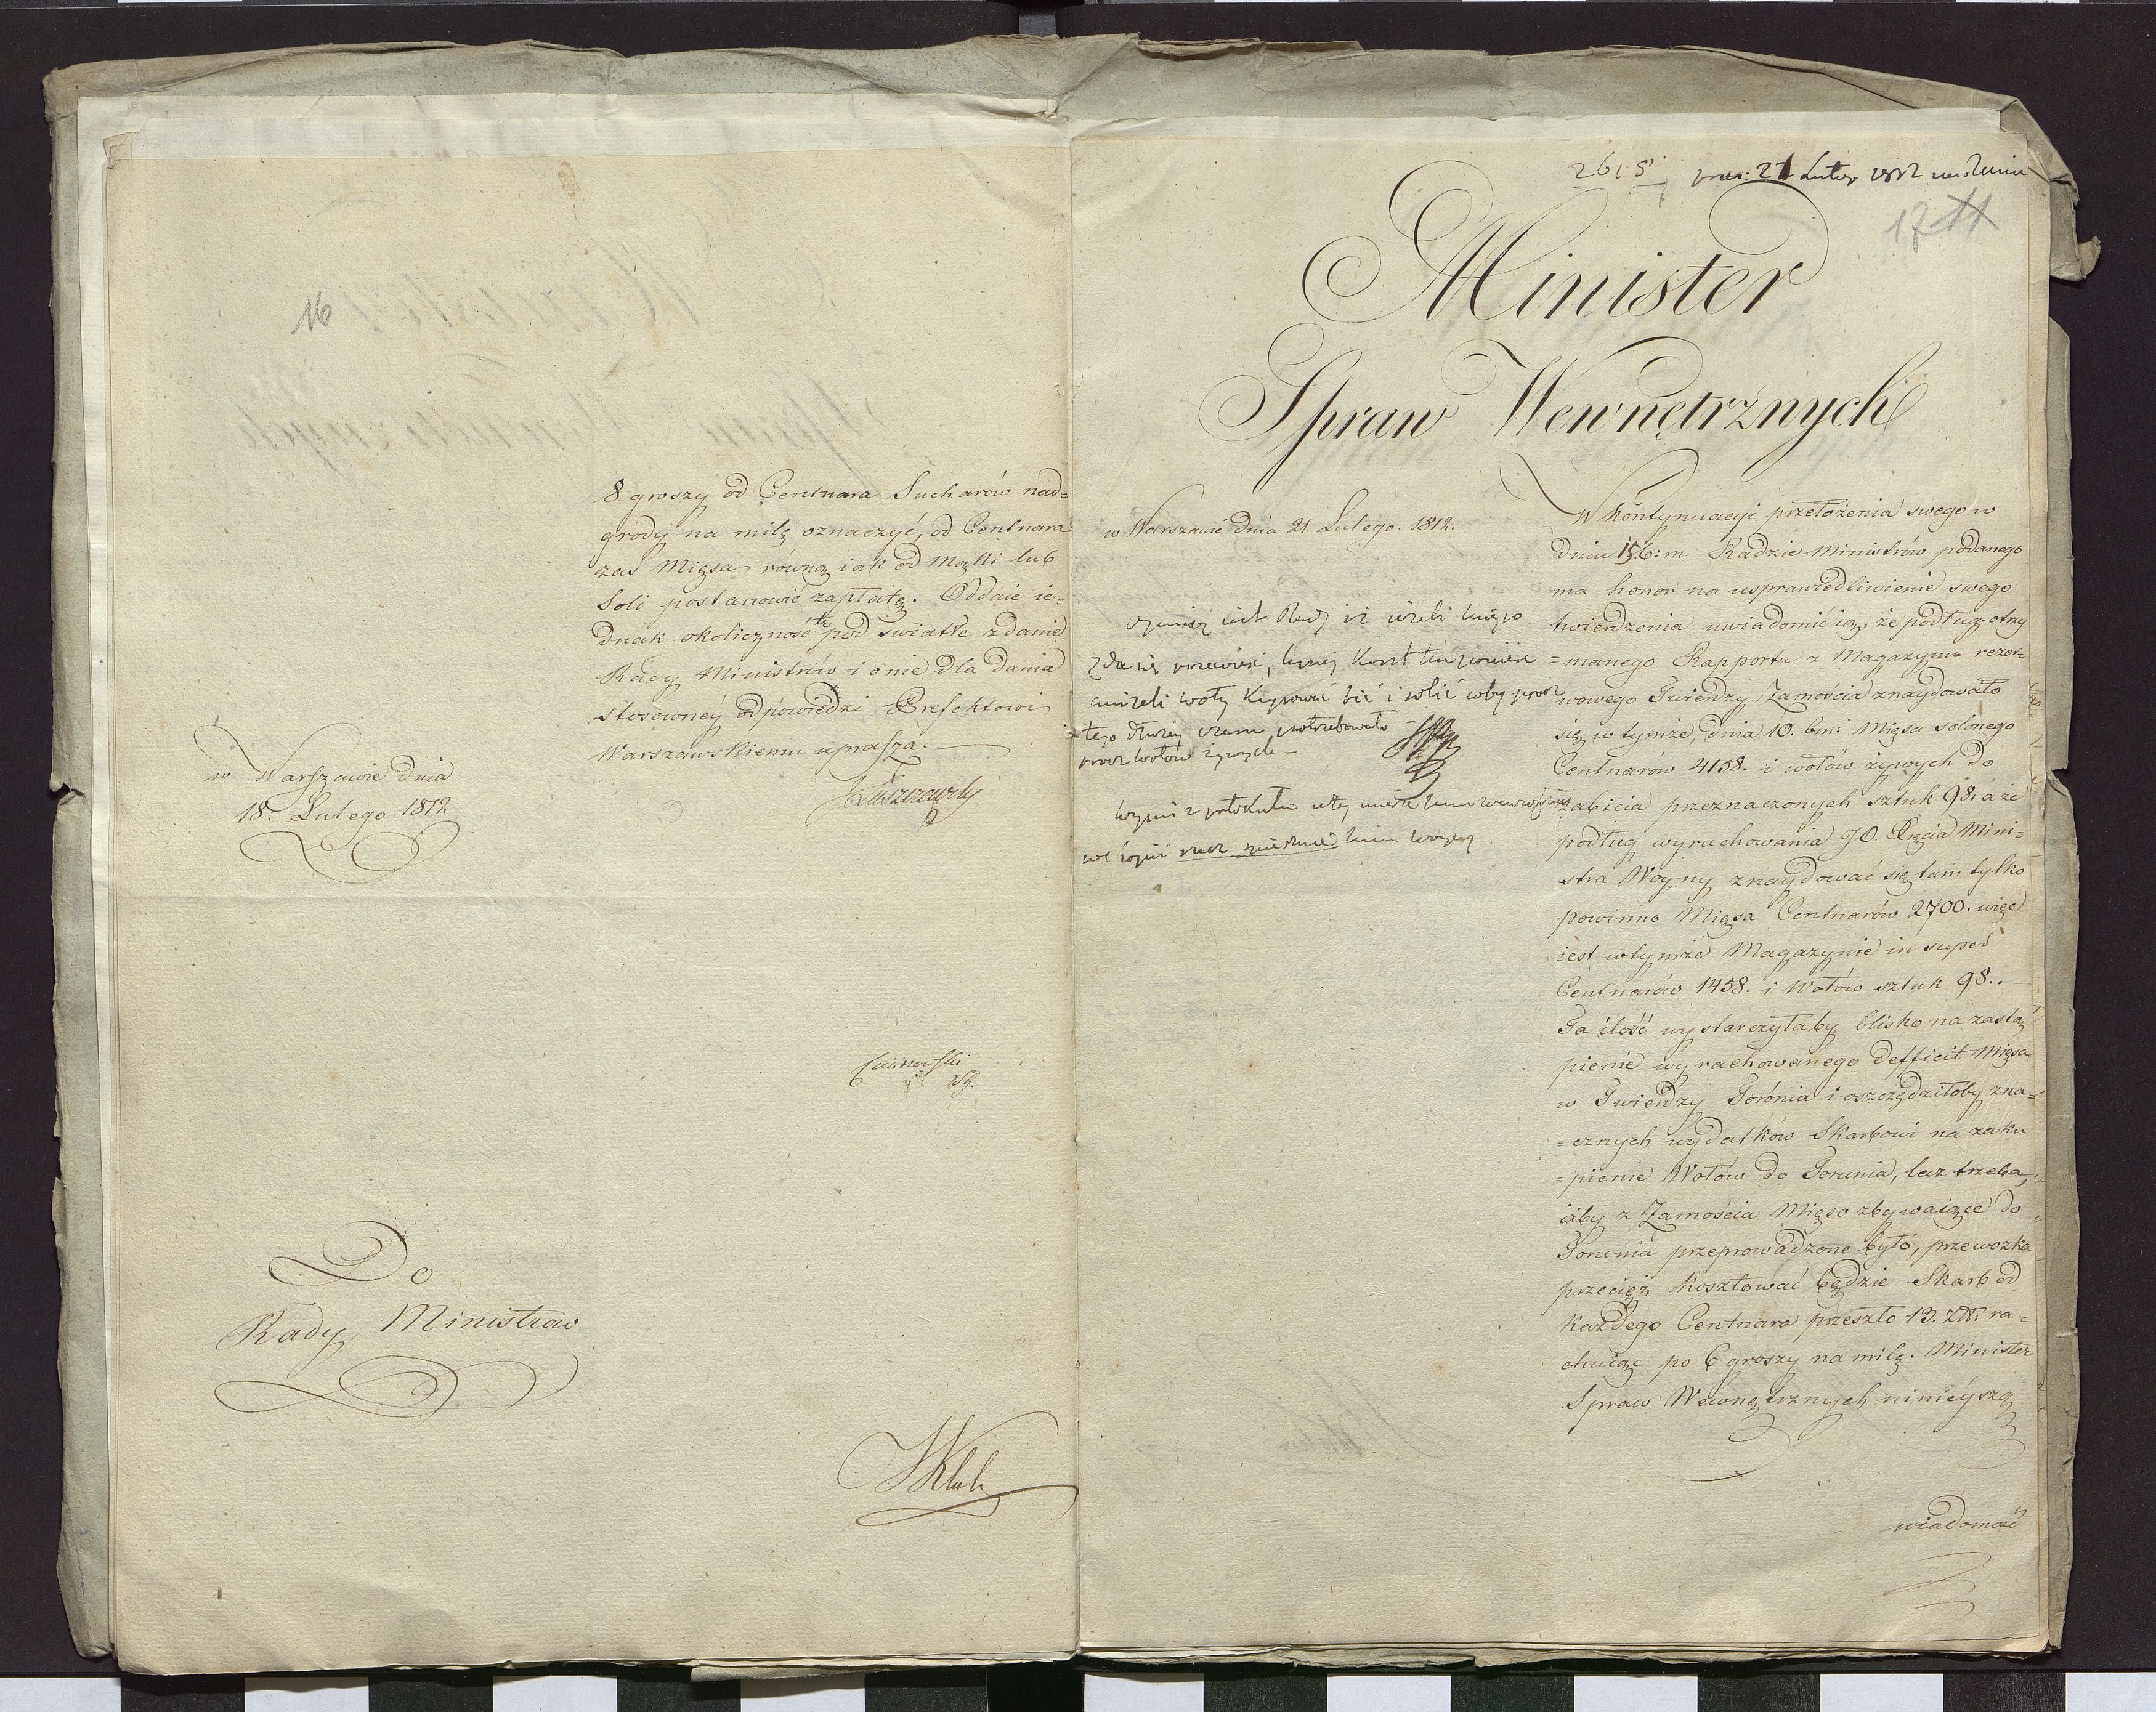 16
8 groszy od Centnara Sucharów nad=
grody na milę oznaczyć, od Centnara
zaś Mięsa równą iak od mąki lub
Soli postanowić zapłatę. Oddaie ie=
dnak okoliczność tę pod światłe zdanie
Rady Ministrów i onie dla dania
stosowney odpowiedzi Prefektowi
Warszawskiemu uprasza.
w Warszawie dnia
18. Lutego 1812
Do
Rady Ministrow
2615
21 Lutego 1812
17 11
Minister
Spraw Wewnętrznych
w Warszawie dnia 21. Lutego. 1812.
W kontynuacyi przełożenia swego w
dniu 15. b: m. Radzie Ministrów podanego
ma honor na usprawiedliwienie swego
twierdzenia uwiadomić ią, że podług otrzy
=manego Rapportu z Magazynu rezer=
wowego Twierdzy Zamościa znaydowało
się w tymże, dnia 10. bm: Mięsa solonego
Centnarów 4158. i wołów żywych do
zabicia przeznaczonych sztuk 98. a że
podług wyrachowania JO. Xięcia Mini=
stra Woyny znaydować się tam tylko
powinno Mięsa Centnarów 2700. więc
iest w tymże Magazynie in super
Centnarów 1458. i Wołów sztuk 98..
Ta ilość wystarczyłaby blisko na zastą
pienie wyrachowanego defficit Mięsa
w Twierdzy Torónia i oszczędziłoby zna=
=cznych wydatków Skarbowi na zaku
=pienie Wołów do Torunia, lecz trzeba,
iżby z Zamościa Mięso zbywaiące do
Torunia przeprowadzone było, przewozka
przecięż kosztować będzie Skarb od
każdego Centnara przeszło 13. Złł: ra=
chuiąc po 6 groszy na milę. Minister
Spraw Wewnętrznych ninieyszą
wiadomość
zda się przewieść, lepiej koszt ten ponieść
aniżeli woły kupować bić i solić coby prócz
tego dłużey czasu potrzebowało
prócz wołów żywych –